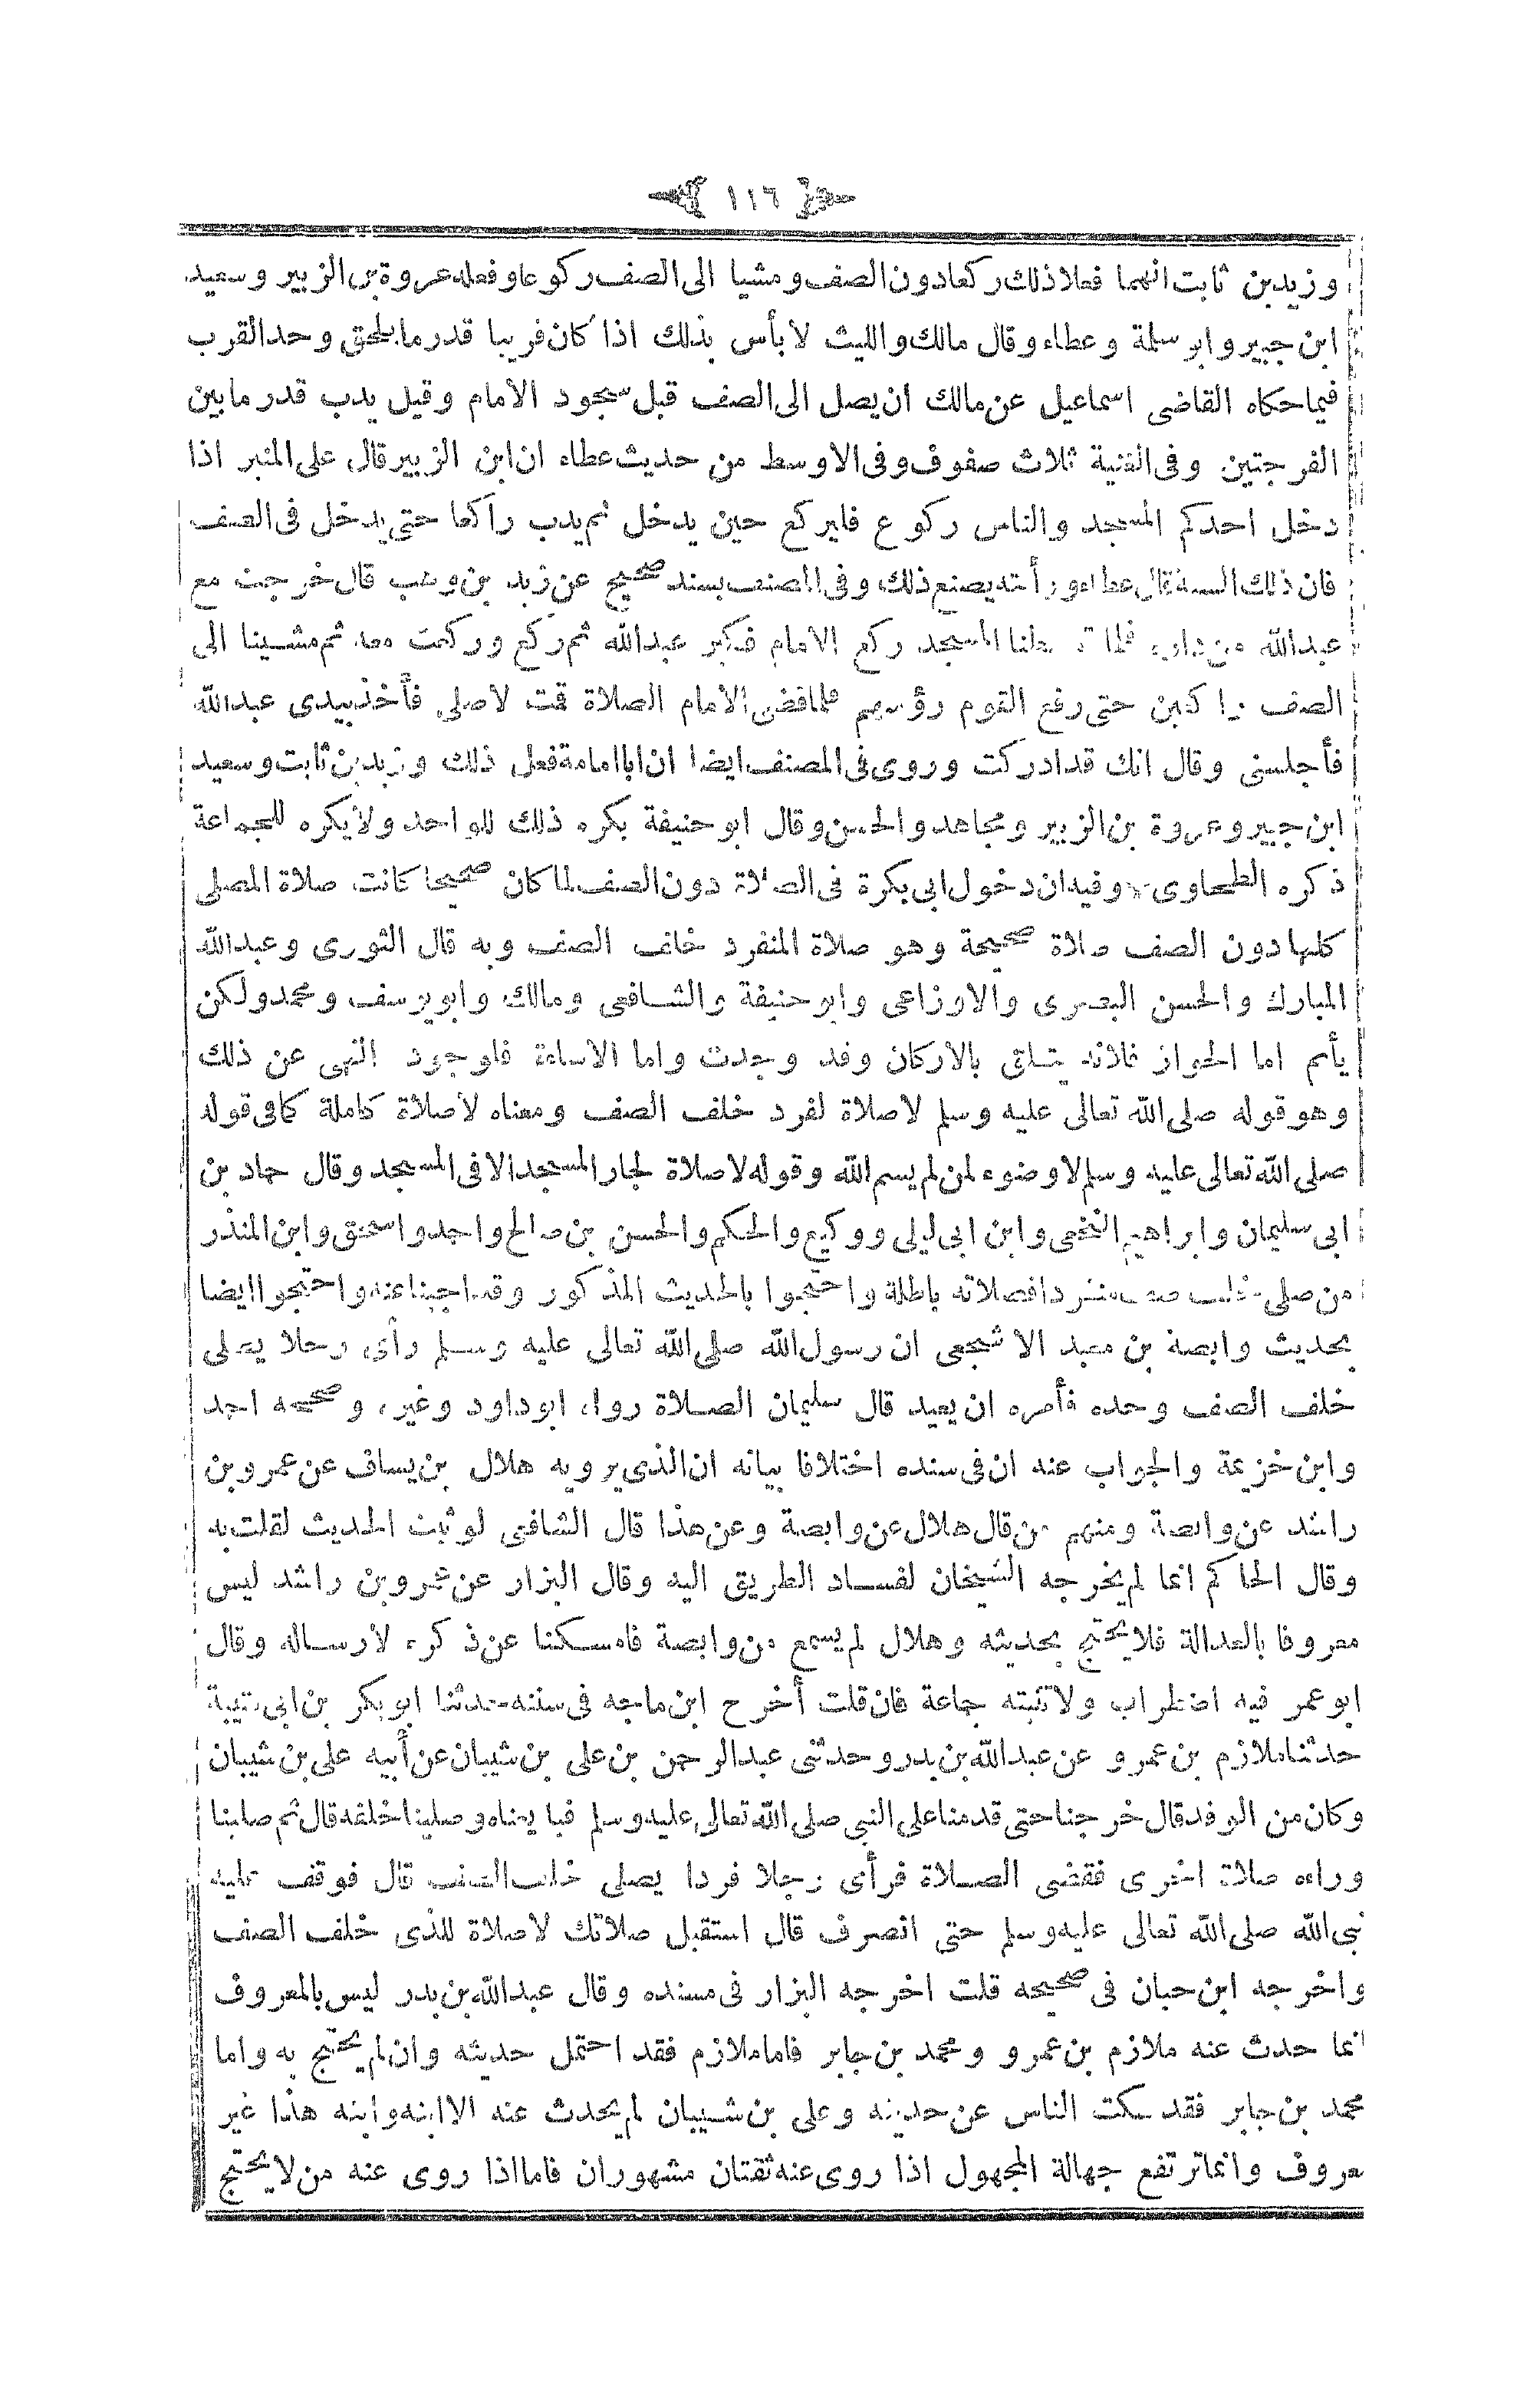 ١١٦
وزيد بن ثابت انهما فعلا ذلك ركعا دون الصف ومشيا الى الصف ركوعا وفعله عروة بن الزبير وسعيد
ابن جبير وابو سلمة وعطاء وقال مالك والليث لا بأس بذلك اذا كان قريبا قدر ما يلحق وحد القرب
فيما حكاه القاضى اسماعيل عن مالك ان يصل الى الصف قبل سجود الامام وقيل يدب قدر ما بين
الفرجتين وفى القنية ثلاث صفوف وفى الاوسط من حديث عطاء ان ابن الزبير قال على المنبر اذا
دخل احدكم المسجد والناس ركوع فليركع حين يدخل ثم يدب راكعا حتى يدخل فى الصف
فان ذلك السنة قال عطاء ورأيته يصنع ذلك وفى المصنف بسند صحيح عن زيد بن وهب قال خرجت مع
عبدالله من داره فلما توسطنا المسجد ركع الامام فكبر عبدالله ثم ركع وركعت معه ثم مشينا الى
الصف راكعين حتى رفع القوم رؤسهم فلما قضى الامام الصلاة قمت لاصلى فأخذ بيدى عبدالله
فأجلسنى وقال انك قد ادركت وروى فى المصنف ايضا ان ابا امامة فعل ذلك وزيد بن ثابت وسعيد
ابن جبير وعروة بن الزبير ومجاهد والحسن وقال ابو حنيفة يكره ذلك للواحد ولا يكره للجماعة
ذكره الطحاوى * وفيه ان دخول ابى بكرة فى الصلاة دون الصف لما كان صحيحا كانت صلاة المصلى
كلها دون الصف صلاة صحيحة وهو صلاة المنفرد خلف الصف وبه قال الثورى وعبدالله
المبارك والحسن البصرى والاوزاعى وابو حنيفة والشافعى ومالك وابو يوسف ومحمد ولكن
يأثم اما الجواز فلانه يتعلق بالاركان وقد وجدت واما الاساءة فلوجود النهى عن ذلك
وهو قوله صلى الله تعالى عليه وسلم لا صلاة لفرد خلف الصف ومعناه لا صلاة كاملة كما فى قوله
صلى الله تعالى عليه وسلم لا وضوء لمن لم يسم الله وقوله لا صلاة لجار المسجد الا فى المسجد وقال حماد بن
ابى سليمان وابراهيم النخعى وابن ابى ليلى ووكيع والحكم والحسن بن صالح واحمد واسحق وابن المنذر
من صلى خلف صف منفردا فصلاته باطلة واحتجوا بالحديث المذكور وقد اجبنا عنه واحتجوا ايضا
بحديث وابصة بن معبد الاشجعى ان رسول الله صلى الله تعالى عليه وسلم رأى رجلا يصلى
خلف الصف وحده فأمره ان يعيد قال سليمان الصلاة رواه ابو داود وغيره وصححه احمد
وابن خزيمة والجواب عنه ان فى سنده اختلافا بيانه ان الذى يرويه هلال بن يساف عن عمرو بن
راشد عن وابصة ومنهم من قال هلال عن وابصة وعن هذا قال الشافعى لو ثبت الحديث لقلت به
وقال الحاكم انما لم يخرجه الشيخان لفساد الطريق اليه وقال البزار عن عمرو بن راشد ليس
معروفا بالعدالة فلا يحتج بحديثه وهلال لم يسمع من وابصة فامسكنا عن ذكره لارساله وقال
ابو عمر فيه اضطراب ولا تثبته جماعة فان قلت أخرج ابن ماجه فى سننه حدثنا ابو بكر بن ابى شيبة
حدثنا ملازم بن عمرو عن عبدالله بن بدر وحدثنى عبدالرحمن بن على بن شيبان عن أبيه على بن شيبان
وكان من الوفد قال خرجنا حتى قدمنا على النبى صلى الله تعالى عليه وسلم فبايعناه وصلينا خلفه قال ثم صلينا
وراءه صلاة اخرى فقضى الصلاة فرأى رجلا فردا يصلى خلف الصف قال فوقف عليه
نبى الله صلى الله تعالى عليه وسلم حتى انصرف قال استقبل صلاتك لا صلاة للذى خلف الصف
واخرجه ابن حبان فى صحيحه قلت اخرجه البزار فى مسنده وقال عبدالله بن بدر ليس بالمعروف
انما حدث عنه ملازم بن عمرو ومحمد بن جابر فاما ملازم فقد احتمل حديثه وان لم يحتج به واما
محمد بن جابر فقد سكت الناس عن حديثه وعلى بن شيبان لم يحدث عنه الا ابنه وابنه هذا غير
معروف وانما ترتفع جهالة المجهول اذا روى عنه ثقتان مشهوران فاما اذا روى عنه من لا يحتج